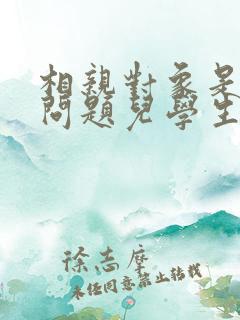 相親對象是
問題兒學生
徐志摩
未經同意禁止轉載